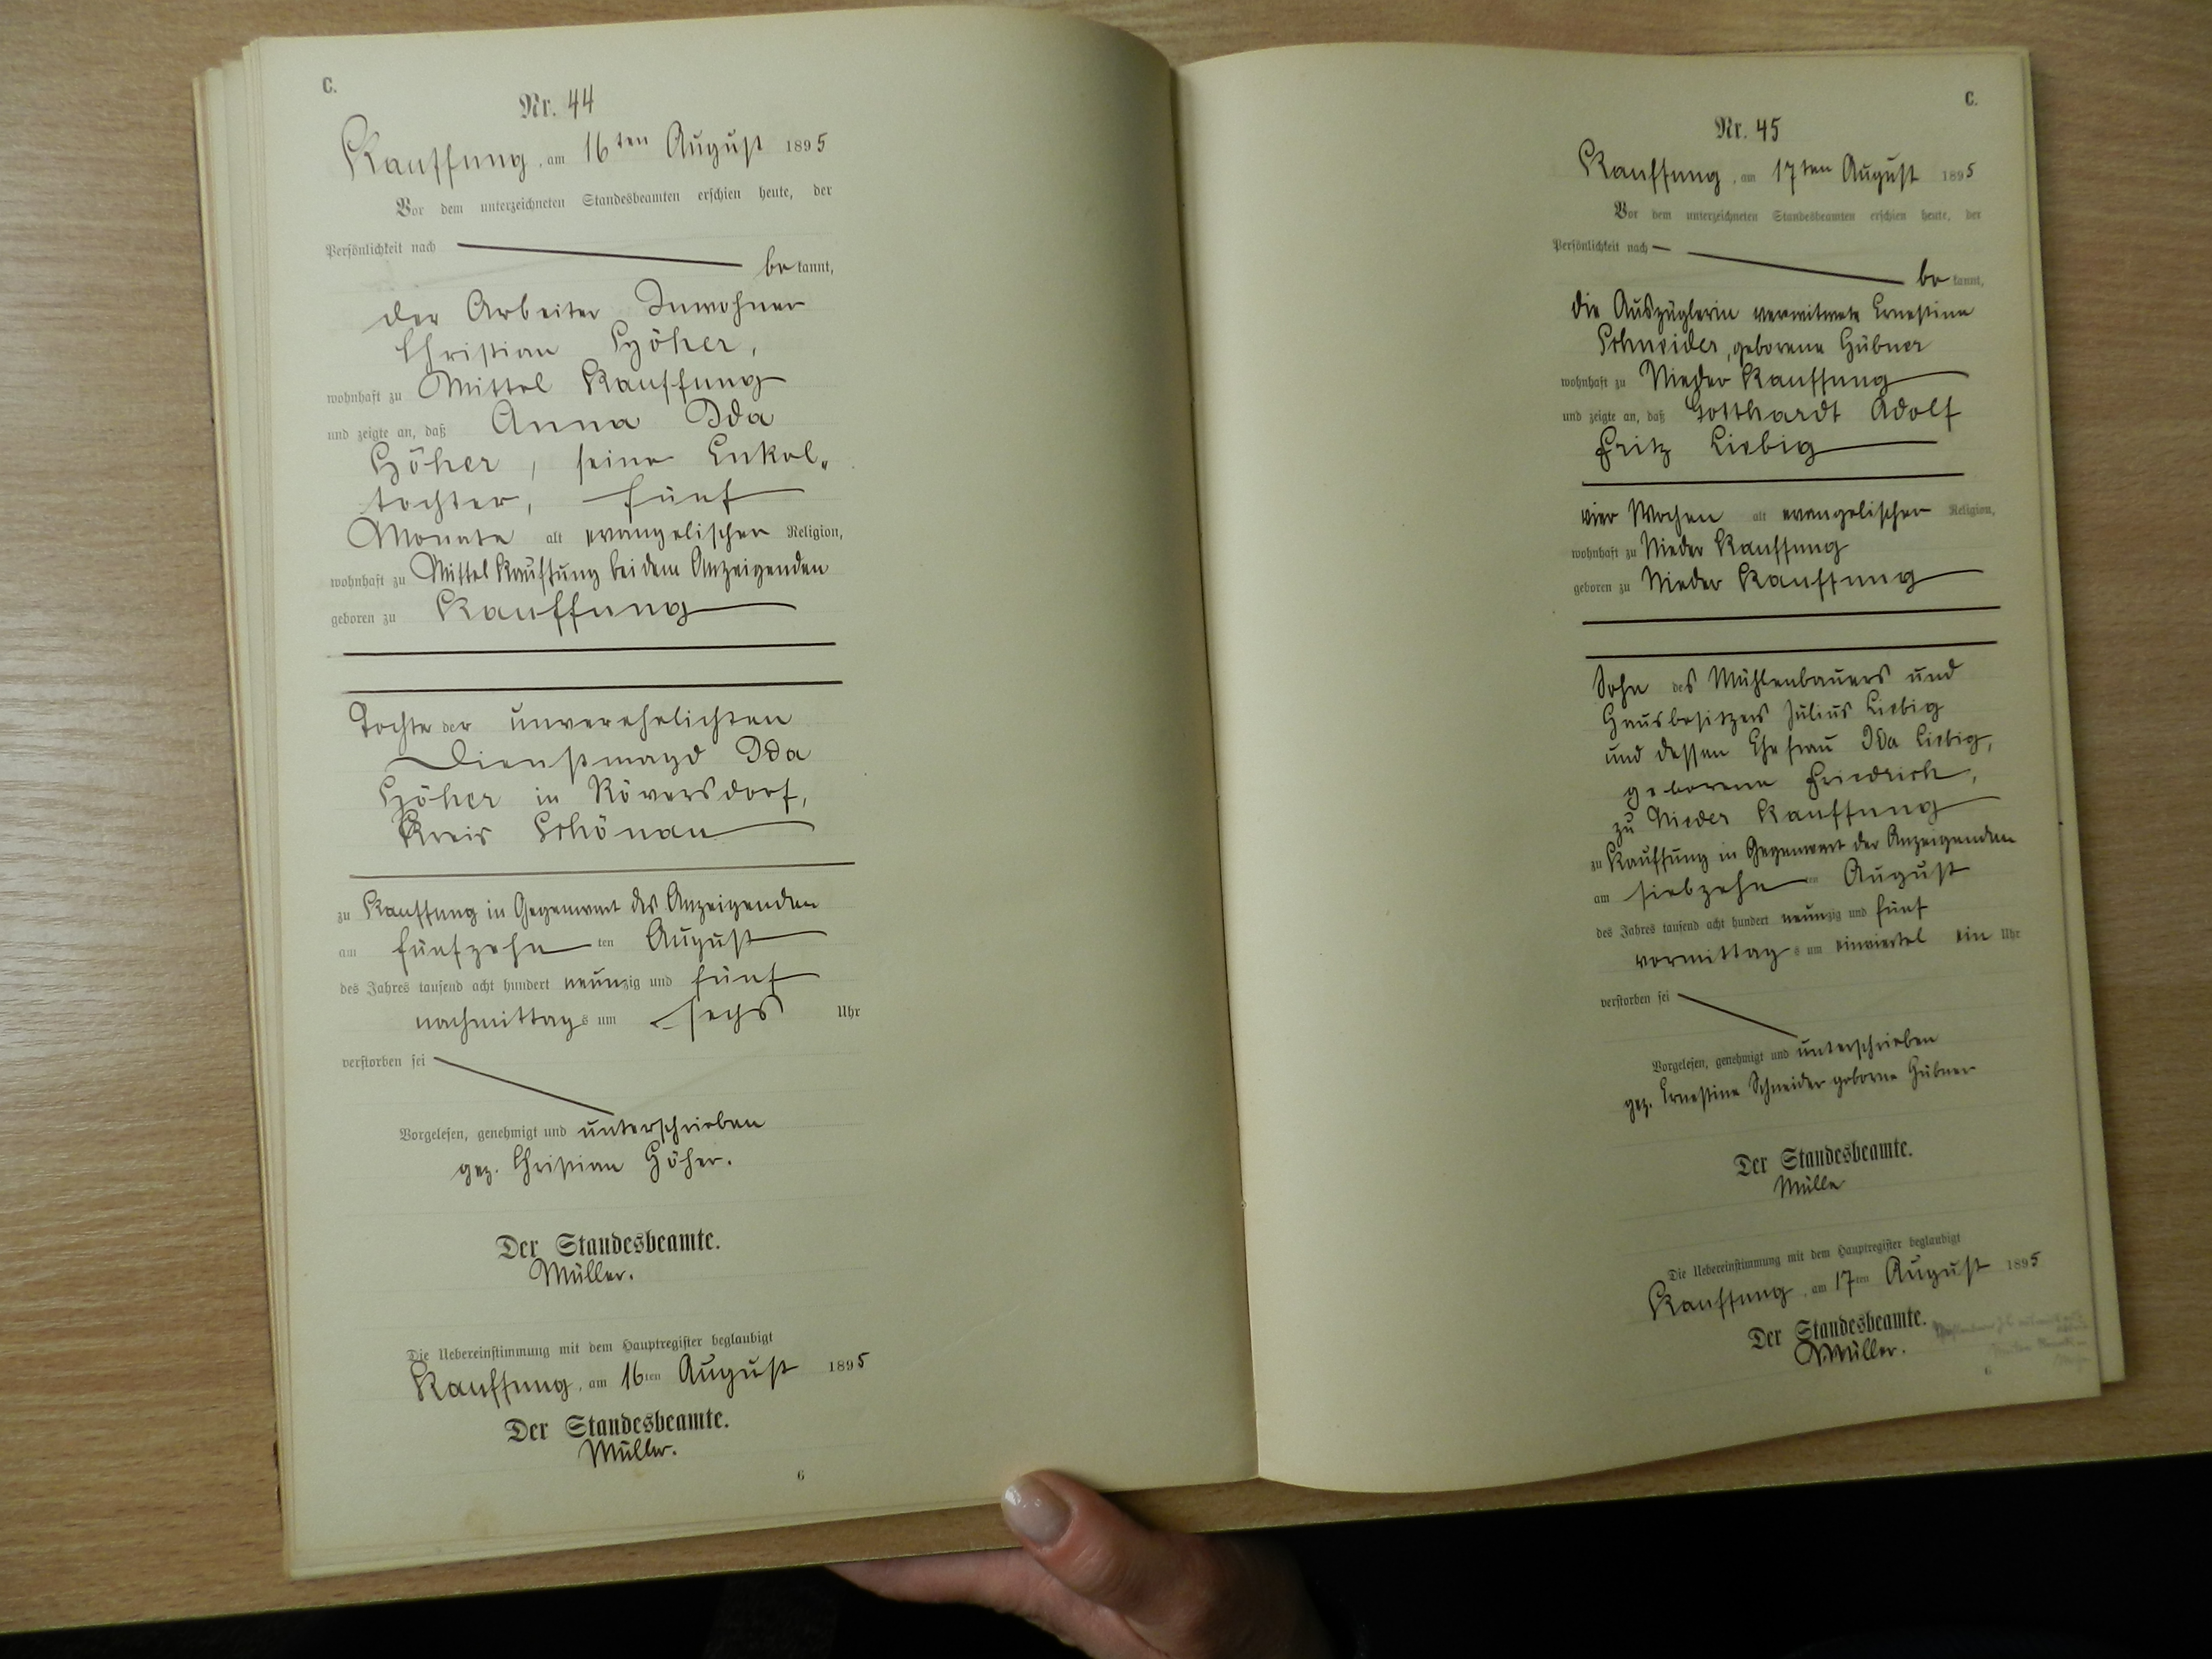 C.
Nr. 44
Kauffung, am 16ten August 1895
Vor dem unterzeichneten Standesbeamten erschien heute, der
Persönlichkeit nach
bekannt,
der Arbeiter Inwohner
Christian Höher,
wohnhaft zu Mittel Kauffung
und zeigte an, daß Anna Ida
Höher, seine Enkel-
tochter, fünf
Monate alt evangelischer Religion,
wohnhaft zu Mittel Kauffung bei dem Anzeigenden
geboren zu Kauffung
Tochter der unverehelichten
Dienstmagd Ida
Höher in Röversdorf,
Kreis Schönau
zu Kauffung in Gegenwart des Anzeigenden
am fünfzehnten August
des Jahres tausend acht hundert neunzig und fünf
nachmittags um sechs Uhr
verstorben sei
Vorgelesen, genehmigt und unterschrieben
gez. Christian Höher.
Der Standesbeamte.
Müller.
Die Uebereinstimmung mit dem Hauptregister beglaubigt
Kauffung, am 16ten August 1895
Der Standesbeamte.
Müller.
6
C.
Nr. 45
Kauffung, am 17ten August 1895
Vor dem unterzeichneten Standesbeamten erschien heute, der
Persönlichkeit nach
bekannt,
die Auszüglerin verwitwete Ernestine
Schneider, geborene Hübner
wohnhaft zu Nieder Kauffung
und zeigte an, daß Gotthardt Adolf
Fritz Liebig
vier Wochen alt evangelischer Religion,
wohnhaft zu Nieder Kauffung
geboren zu Nieder Kauffung
Sohn des Mühlenbauers und
Hausbesitzers Julius Liebig
und dessen Ehefrau Ida Liebig,
geborene Friedrich,
zu Nieder Kauffung
zu Kauffung in Gegenwart der Anzeigenden
am siebzehnten August
des Jahres tausend acht hundert neunzig und fünf
vormittags um einviertel ein Uhr
verstorben sei
Vorgelesen, genehmigt und unterschrieben
gez. Ernestine Schneider geborne Hübner
Der Standesbeamte.
Müller
Die Uebereinstimmung mit dem Hauptregister beglaubigt
Kauffung, am 17ten August 1895
Der Standesbeamte.
Müller.
6